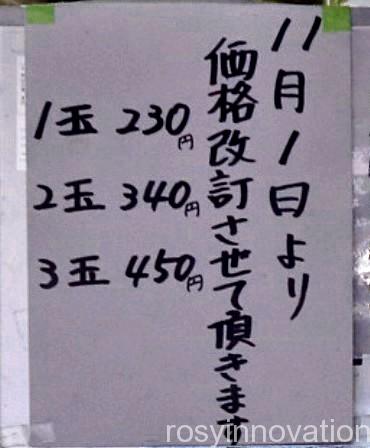 11月1日より
価格改訂させて頂きます
1玉 230円
2玉 340円
3玉 450円
rosyinnovation